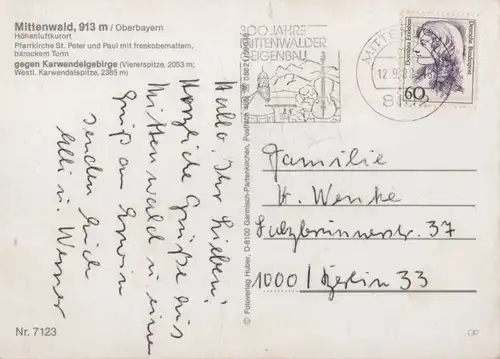 Mittenwald, 913 m / Oberbayern
Höhenluftkurort
Pfarrkirche St. Peter und Paul mit freskobemaltem,
barockem Turm
gegen Karwendelgebirge (Viererspitze, 2053 m;
Westl. Karwendelspitze, 2385 m)
Hallo, Ihr Lieben!
Herzliche Grüße aus
Mittenwald u. einen
Gruß an Erwin
senden Euch
Elli u. Werner
Nr. 7123
© Fotoverlag Huber, D-8100 Garmisch-Partenkirchen, Postfach
300 JAHRE
MITTENWALDER
GEIGENBAU
MITTEN
12.9.
Deutsche Bundespost
60
Familie
H. Wenke
Sulzbrunnerstr. 37
1000 / Berlin 33